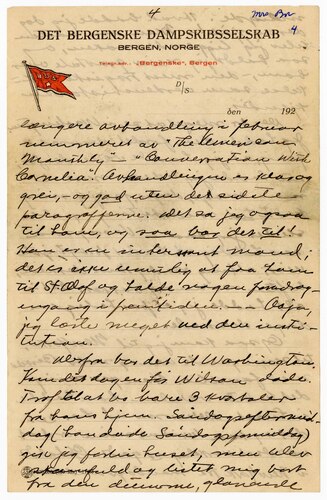 4
Mrs. Br
4
DET BERGENSKE DAMPSKIBSSELSKAB
BERGEN, NORGE
Telegr.adr.: „Bergenske", Bergen
D/S
den 192
længere avhandling i februar
nummeret av "The American
Monthly — "Conversation With
Cornelia". Avhandlingen er klar og
grei, – og god uten de sidste
paragrafferne. Det sa jeg ogsaa
til ham, og saa var det til!
Han er en interessant mand;
det er ikke umulig at faa ham
til St Olaf og holde nogen foredrag
engang i fremtiden. —
jeg meget ved den insti-
tution.
Derfra var det til Washington.
Kun dagen før Wilson døde.
bo bare 3 kvartaler
fra hans hjem. Søndag eftermid-
dag (han døde Søndag formiddag)
gik jeg forbi huset, men blev
og ledet mig bort
fra den